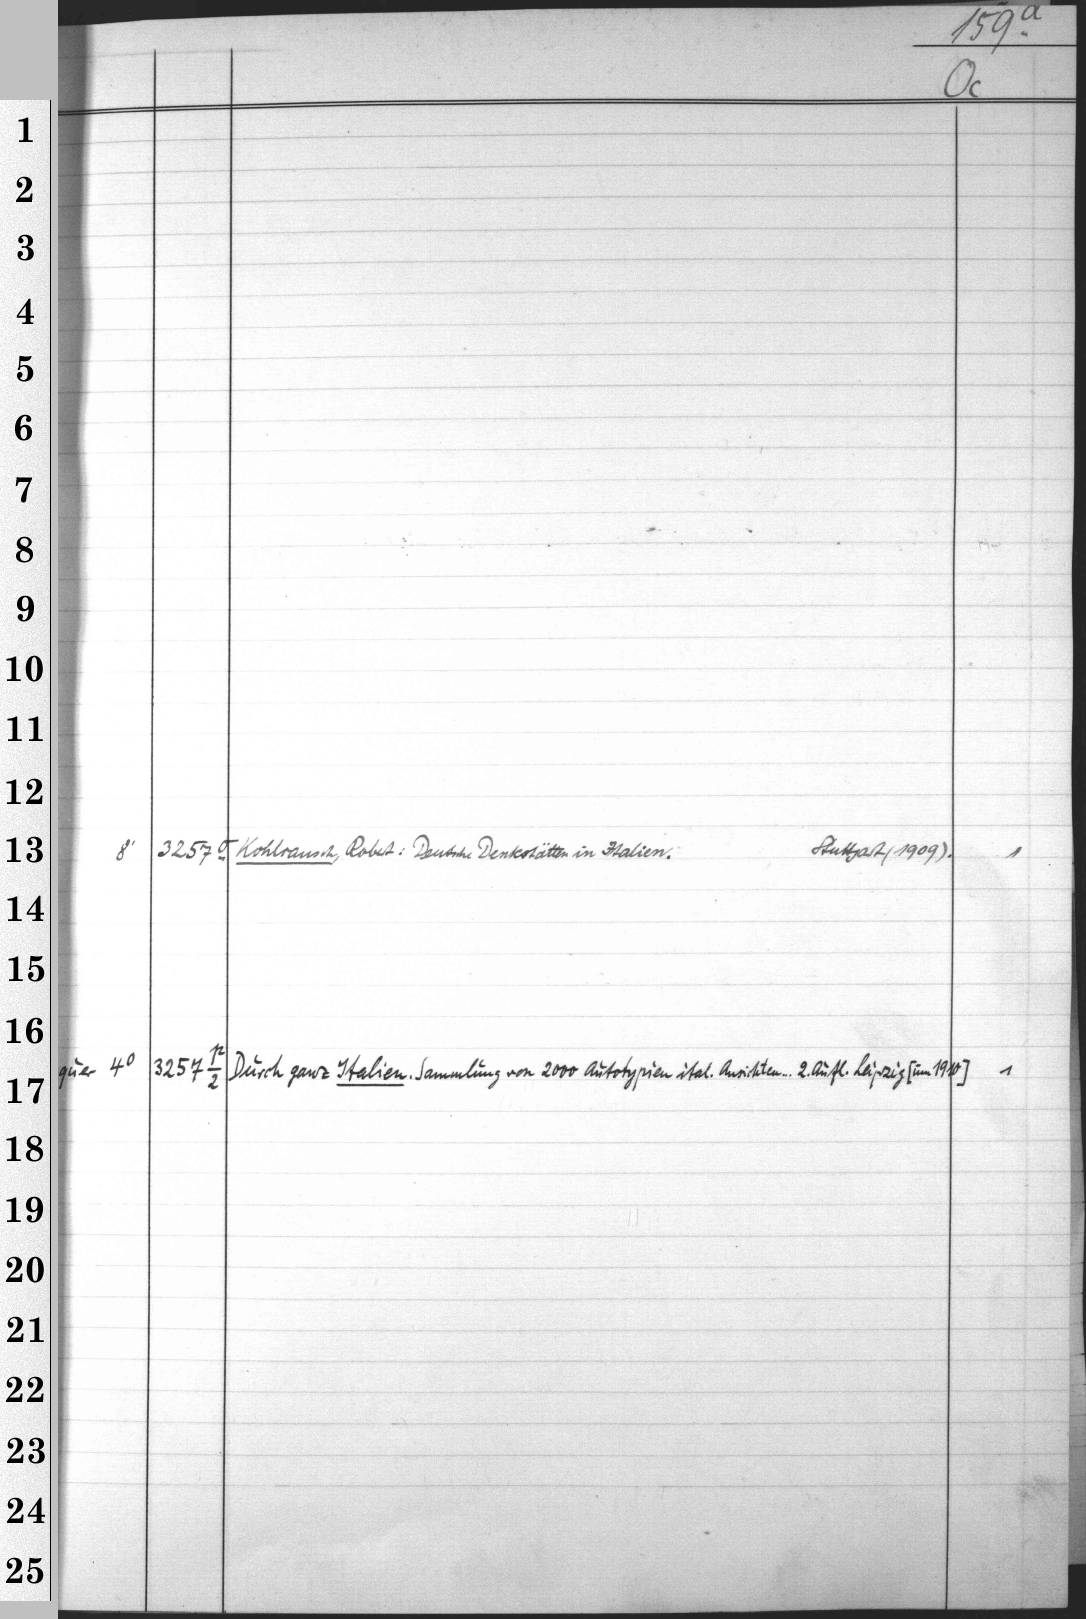 159a
Oc
1
2
3
4
5
6
7
8
9
10
11
12
13 8' 3257 Kohlrausch, Robert: Deutsche Denkstätten in Italien. Stuttgart, (1909). 1
14
15
16
17 quer 4° 3257 12/2 Durch ganz Italien. Sammlung von 2000 Autotypien ital. Ansichten... 2. Aufl. Leipzig [um 1910] 1
18
19
20
21
22
23
24
25